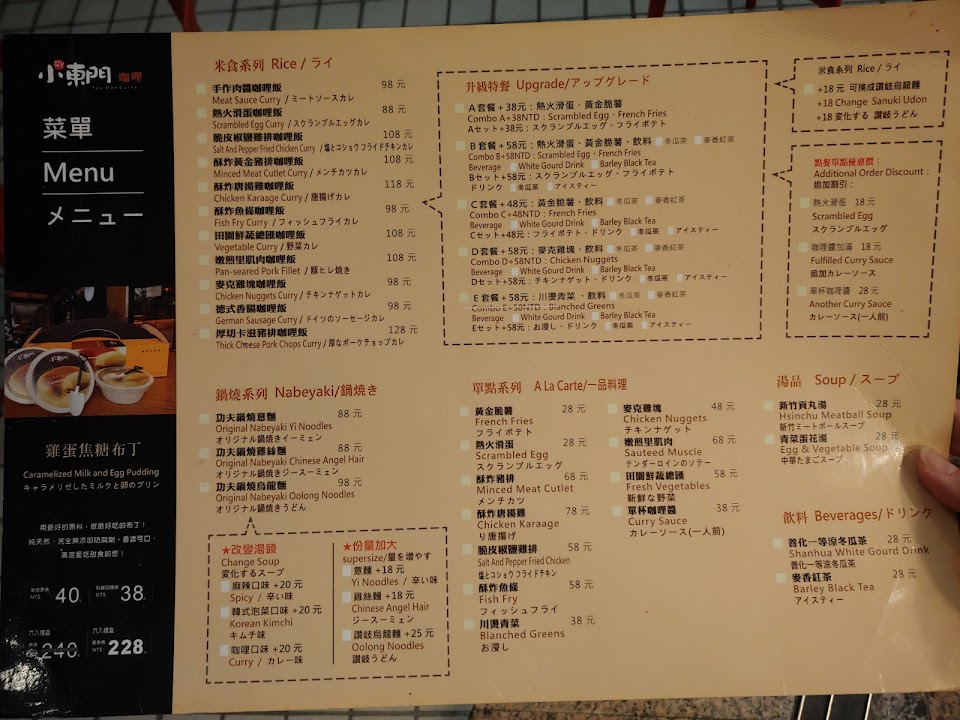 小東門 咖哩
菜單
Menu
メニュー
雞蛋焦糖布丁
Caramelized Milk and Egg Pudding
キャラメリゼしたミルクと卵のプリン
用最好的原料，做最好吃的布丁！
純天然、完全無添加防腐劑，香濃可口、
滿足愛吃甜食的您！
NT$ 40 NT$ 38
六入禮盒 六入禮盒
240 NT$ 228
米食系列 Rice / ライ
手作肉醬咖哩飯 98 元
Meat Sauce Curry / ミートソースカレ
熱火滑蛋咖哩飯 88 元
Scrambled Egg Curry / スクランブルエッグカレ
脆皮椒鹽雞排咖哩飯 108 元
Salt And Pepper Fried Chicken Curry / 塩とコショウフライドチキンカレ
酥炸黃金豬排咖哩飯 108 元
Minced Meat Cutlet Curry / メンチカツカレ
酥炸唐揚雞咖哩飯 118 元
Chicken Karaage Curry / 唐揚げカレ
酥炸魚條咖哩飯 98 元
Fish Fry Curry / フィッシュフライカレ
田園鮮蔬總匯咖哩飯 108 元
Vegetable Curry / 野菜カレ
嫩煎里肌肉咖哩飯 108 元
Pan-seared Pork Fillet / 豚ヒレ焼き
麥克雞塊咖哩飯 98 元
Chicken Nuggets Curry / チキンナゲットカレ
德式香腸咖哩飯 98 元
German Sausage Curry / ドイツのソーセージカレ
厚切卡滋豬排咖哩飯 128 元
Thick Cheese Pork Chops Curry / 厚なポークチョップカレ
升級特餐 Upgrade/アップグレード
A 套餐 + 38元：熱火滑蛋、黃金脆薯
Combo A+38NTD : Scrambled Egg、French Fries
Aセット+38元：スクランブルエッグ・フライポテト
B 套餐 + 58元：熱火滑蛋、黃金脆薯、飲料 冬瓜茶 麥香紅茶
Combo B+58NTD : Scrambled Egg、French Fries
Beverage White Gourd Drink Barley Black Tea
Bセット+58元：スクランブルエッグ・フライポテト
ドリンク 冬瓜茶 アイスティー
C 套餐 + 48元：黃金脆薯、飲料 冬瓜茶 麥香紅茶
Combo C+48NTD : French Fries
Beverage White Gourd Drink Barley Black Tea
Cセット+48元：フライポテト・ドリンク 冬瓜茶 アイスティー
D 套餐 + 58元：麥克雞塊、飲料 冬瓜茶 麥香紅茶
Combo D+58NTD : Chicken Nuggets
Beverage White Gourd Drink Barley Black Tea
Dセット+58元：チキンナゲット・ドリンク 冬瓜茶 アイスティー
E 套餐 + 58元：川燙青菜、飲料 冬瓜茶 麥香紅茶
Combo E+58NTD : Blanched Greens
Beverage White Gourd Drink Barley Black Tea
Eセット+58元：お浸し・ドリンク 冬瓜茶 アイスティー
米食系列 Rice / ライ
+18元 可換成讚岐烏龍麵
+18 Change Sanuki Udon
+18 変化する 讚岐うどん
點餐單點優惠價：
Additional Order Discount :
追加割引：
熱火滑蛋 18 元
Scrambled Egg
スクランブルエッグ
咖哩醬加滿 18 元
Fulfilled Curry Sauce
追加カレーソース
單杯咖哩醬 28 元
Another Curry Sauce
カレーソース(一人前)
鍋燒系列 Nabeyaki/鍋焼き
功夫鍋燒意麵 88 元
Original Nabeyaki Yi Noodles
オリジナル鍋焼きイーミェン
功夫鍋燒雞絲麵 88 元
Original Nabeyaki Chinese Angel Hair
オリジナル鍋焼きジースーミェン
功夫鍋燒烏龍麵 98 元
Original Nabeyaki Oolong Noodles
オリジナル鍋焼きうどん
★改變湯頭
Change Soup
変化するスープ
麻辣口味 +20 元
Spicy / 辛い味
韓式泡菜口味 +20 元
Korean Kimchi
キムチ味
咖哩口味 +20 元
Curry / カレー味
★份量加大
supersize/量を増やす
意麵 +18 元
Yi Noodles / 辛い味
雞絲麵 +18 元
Chinese Angel Hair
ジースーミェン
讚岐烏龍麵 +25 元
Oolong Noodles
讚岐うどん
單點系列 A La Carte/一品料理
黃金脆薯 28 元
French Fries
フライポテト
熱火滑蛋 28 元
Scrambled Egg
スクランブルエッグ
酥炸豬排 68 元
Minced Meat Cutlet
メンチカツ
酥炸唐揚雞 78 元
Chicken Karaage
り唐揚げ
脆皮椒鹽雞排 58 元
Salt And Pepper Fried Chicken
塩とコショウ フライドチキン
酥炸魚條 58 元
Fish Fry
フィッシュフライ
川燙青菜 38 元
Blanched Greens
お浸し
麥克雞塊 48 元
Chicken Nuggets
チキンナゲット
嫩煎里肌肉 68 元
Sauteed Muscle
テンダーロインのソテー
田園鮮蔬總匯 58 元
Fresh Vegetables
新鮮な野菜
單杯咖哩醬 38 元
Curry Sauce
カレーソース(一人前)
湯品 Soup / スープ
新竹貢丸湯 28 元
Hsinchu Meatball Soup
新竹ミートボールスープ
青菜蛋花湯 28 元
Egg & Vegetable Soup
中華たまごスープ
飲料 Beverages/ドリンク
善化一等涼冬瓜茶 28 元
Shanhua White Gourd Drink
善化一等涼冬瓜茶
麥香紅茶 28 元
Barley Black Tea
アイスティー